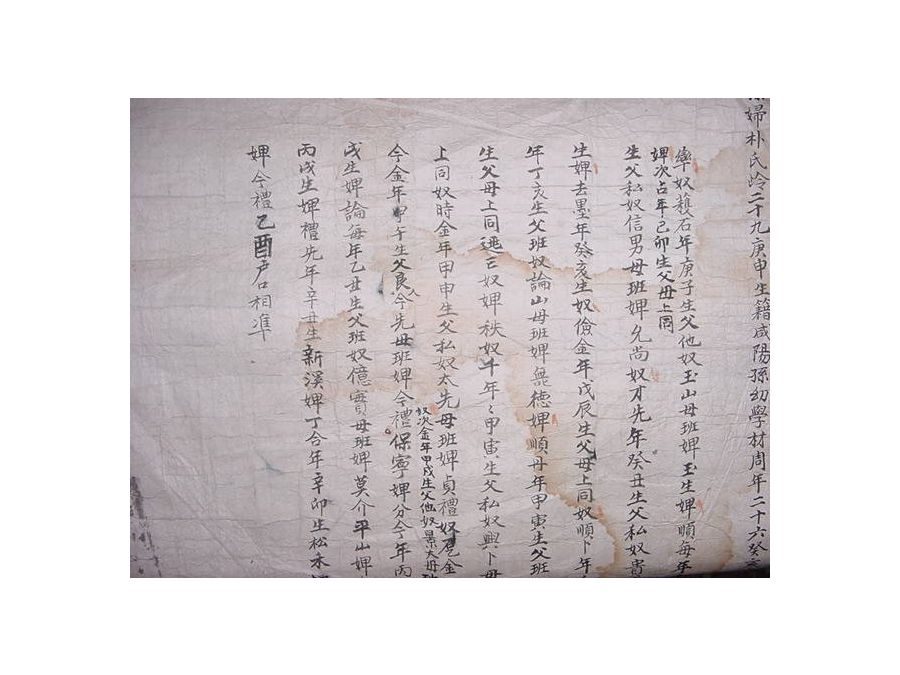 婦朴氏齡二十九庚申生籍咸陽孫幼學材周年二十六癸亥
率奴穪石年庚子生父他奴玉山母班婢玉生婢順每年
婢次占年己卯生父母上同
生父私奴信男母班婢允尚奴才先年癸丑生父私奴貴
生婢去墨年癸亥生奴儉金年戊辰生父母上同奴順卜年
年丁亥生父班奴論山母班婢無德婢順丹年甲寅生父班
生父母上同逃亡奴婢秩奴千年〻甲寅生父私奴興卜母
上同奴時金年甲申生父私奴太先母班婢貞禮奴乭金
奴次金年甲戌生父他奴景大母班
今金年甲午生父良人今先母班婢今禮保寧婢分今年丙
戌生婢論每年乙丑生父班奴億實母班婢莫介平山婢
丙戌生婢禮先年辛丑生新溪婢丁合年辛卯生松禾婢
婢今禮乙酉戶口相準